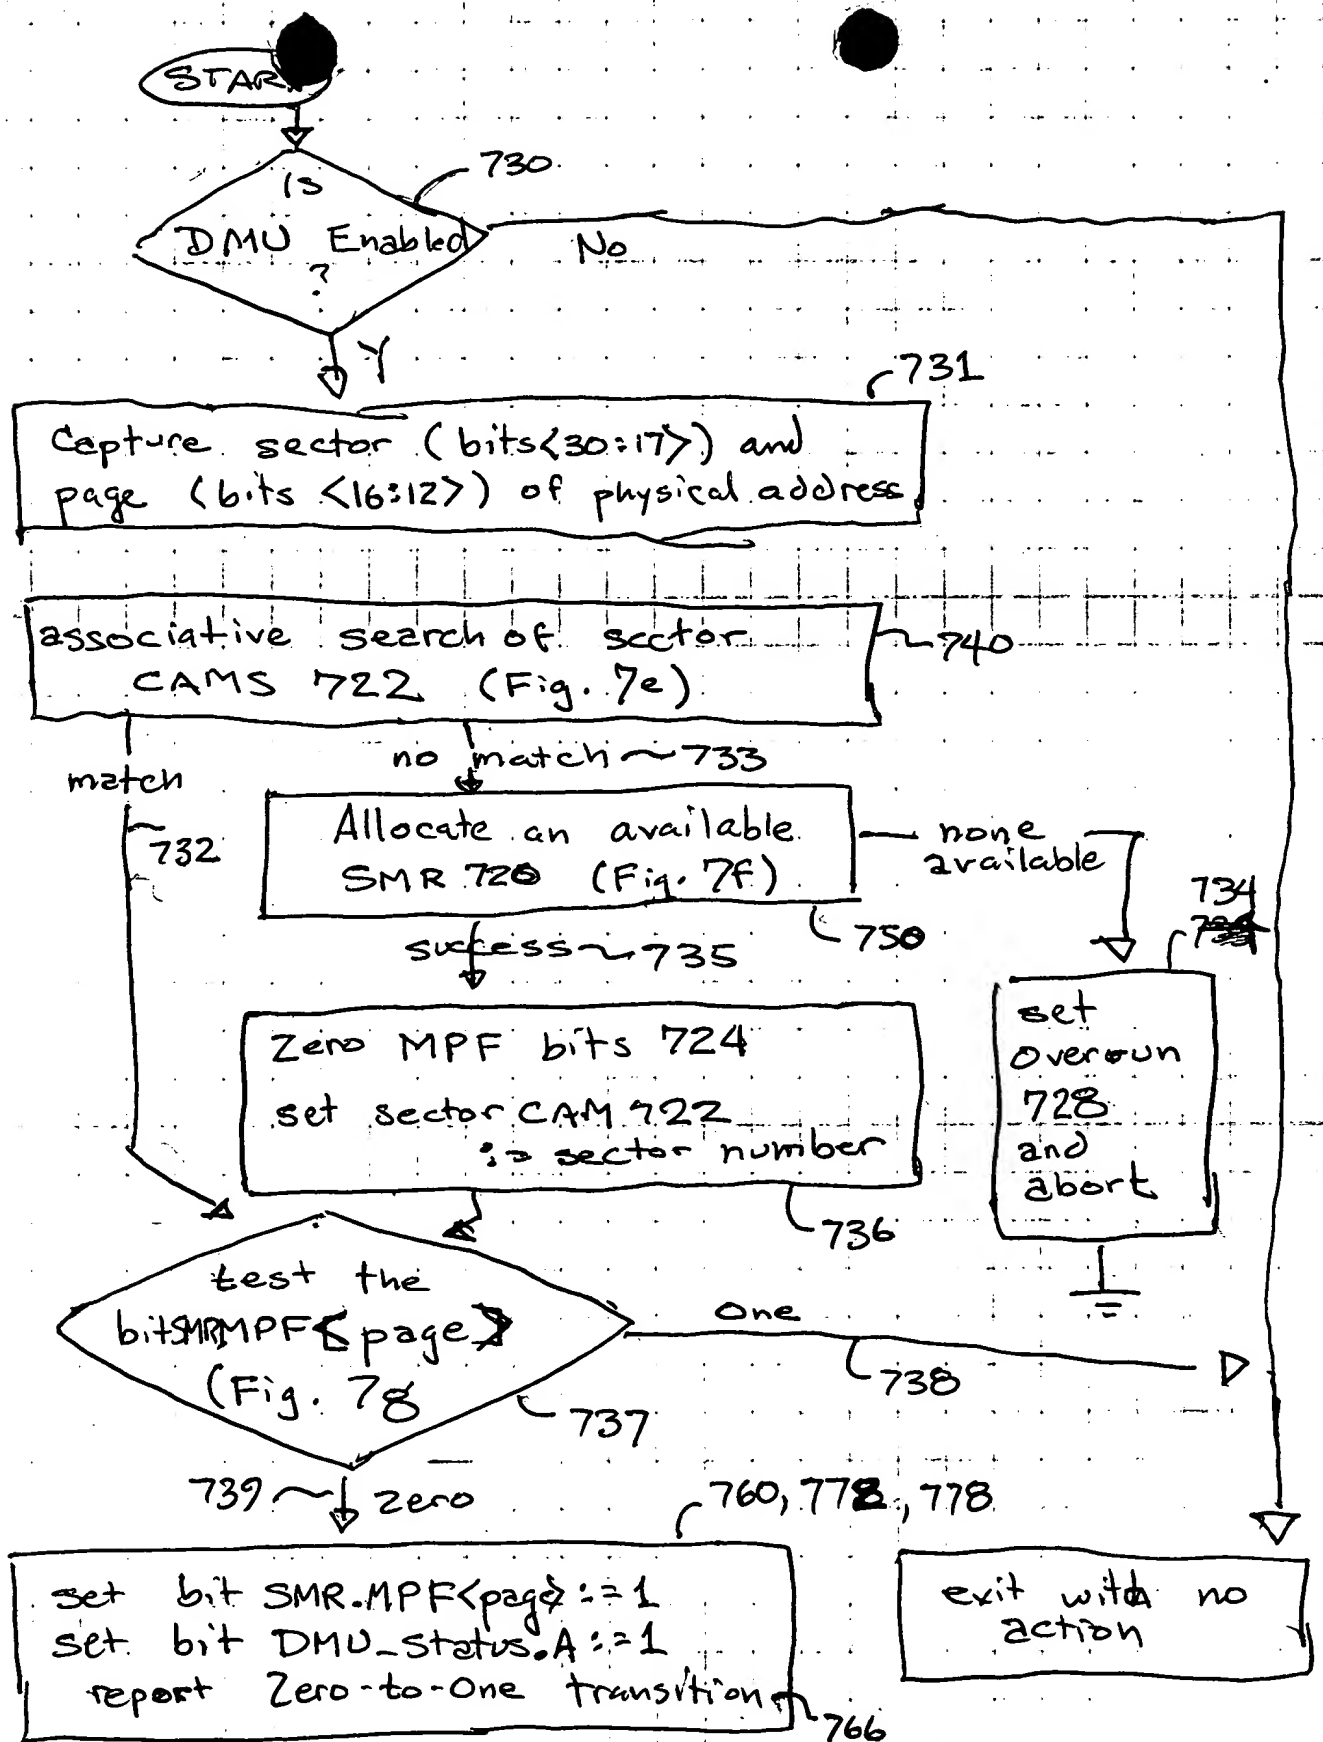 STAR
730
Is
DMU Enabled
?
No
Y
731
Capture sector (bits<30:17>) and
page (bits <16:12>) of physical address
associative search of sector
CAMS 722 (Fig. 7e)
740
match
no match 733
732
Allocate an available
SMR 720 (Fig. 7f)
none
available
750
734
success 735
Zero MPF bits 724
set sector CAM 722
:= sector number
736
set
overrun
728
and
abort
test the
bit SMR MPF<page>
(Fig. 7g
737
One
738
739 zero
760, 778, 778
set bit SMR.MPF<page> :=1
set bit DMU_Status.A :=1
report Zero-to-One transition
766
exit with no
action